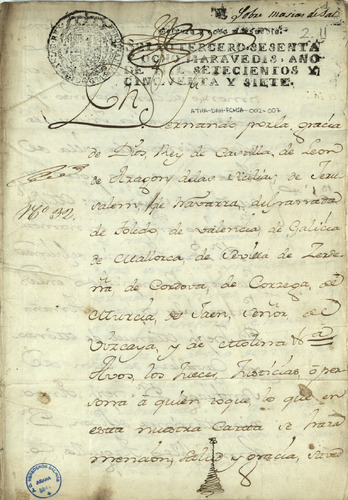 Sobre
SELLO TERCERO, SESENTA
Y OCHO MARAVEDIS, AÑO
DE MIL SETECIENTOS Y
CINQVENTA Y SIETE.
ATHA-DAH-FCHCA-002-007
Fernando por la gracia
de Dios, Rey de Castilla, de Leon
de Aragon, de las Sicilias, de Jeru
salem, de Navarra, de Granada
de Toledo, de Valencia, de Galicia
de Mallorca, de Sevilla de Zerde
ña, de Cordova, de Corzega, de
Murcia, de Jaen, Señor de
Vizcaya, y de Molina &a
A vos, los Jueces, Justicias, o per
sona a quien toque lo que en
esta nuestra Carta se hara
mencion, salud y gracia, saved